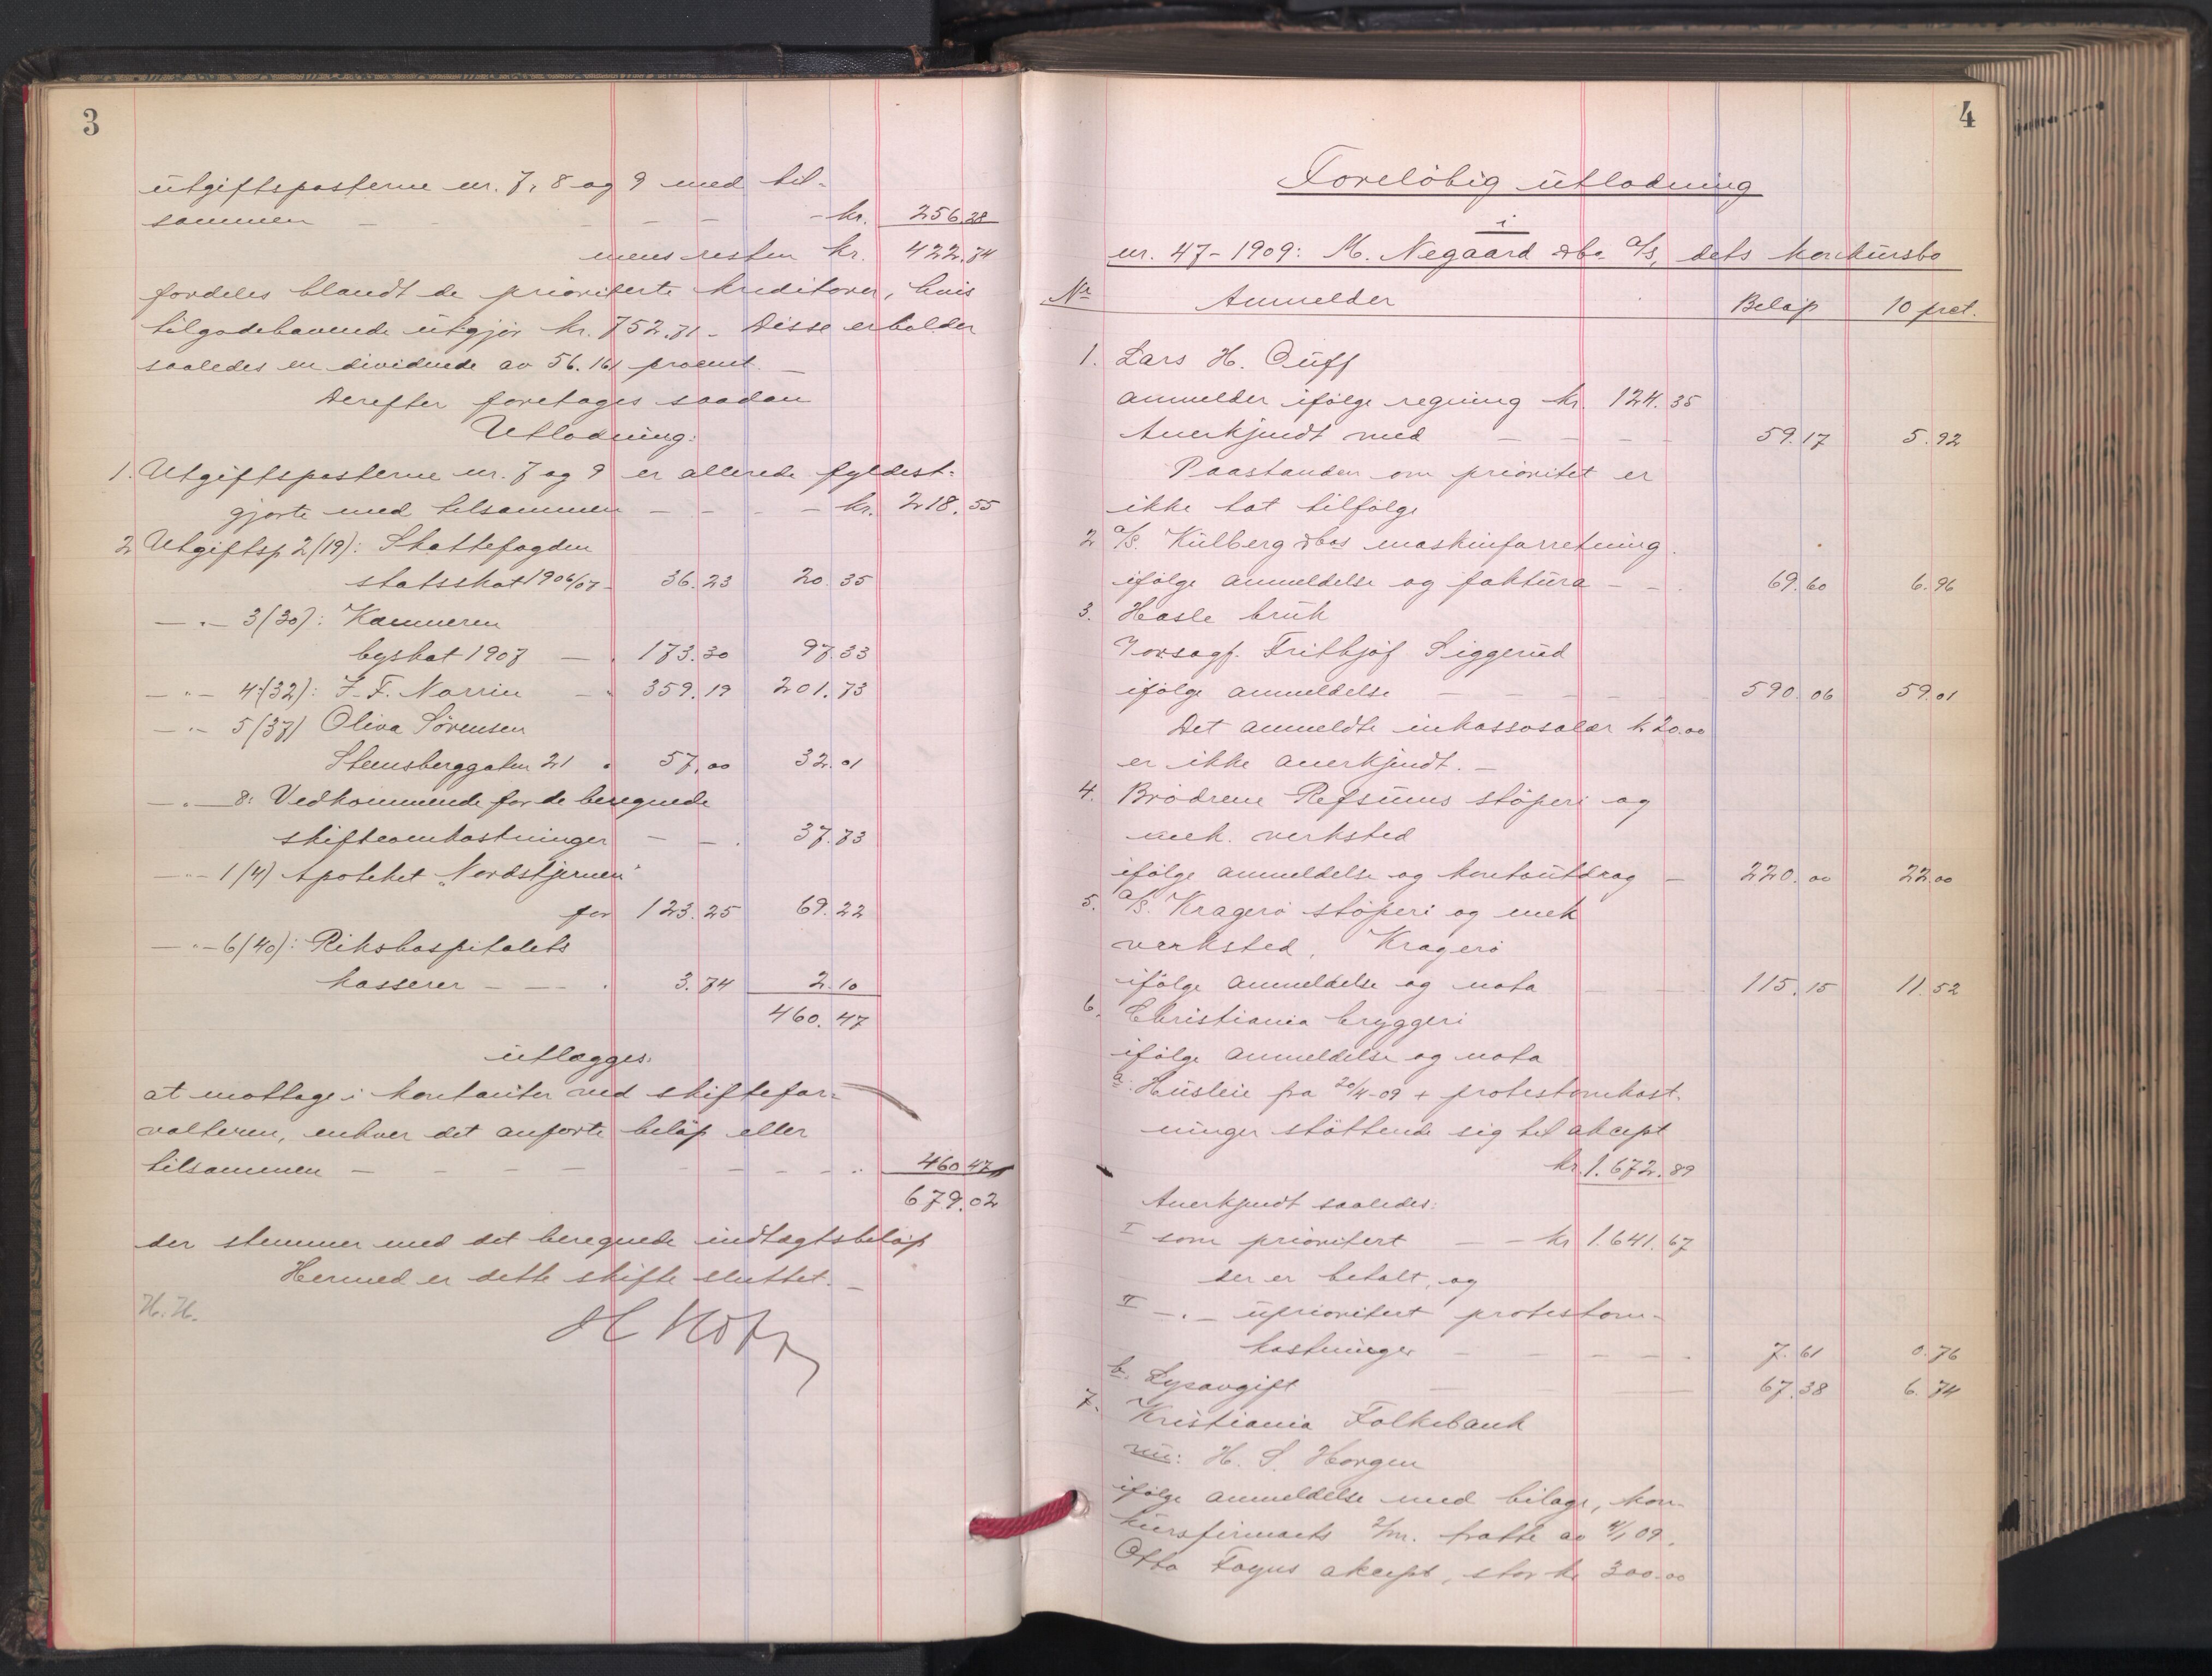 3
utgiftsposterne nr. 7, 8 og 9 med til-
sammen — — — — kr. 256.28
mens resten kr. 422.74
fordeles blandt de prioriterte kreditorer, hvis
tilgodehavende utgjør kr. 752.71 – Disse erholder
saaledes en dividende av 56.161 procent. —
Derefter foretages saadan
Utlodning:
1. Utgiftsposterne nr. 7 og 9 er allerede fyldest-
gjorte med tilsammen — — — — kr. 218.55
2 Utgiftsp. 2 (19): Skattefogden
statsskat 1906/07 – 36.23 20.35
— „ — 3 (30): Kæmneren
byskat 1907 — . 173.30 97.33
— „ — 4 (32): J. F. Norrin — „ 359.19 201.73
— „ — 5 (37) Oliva Sørensen
Stensberggaten 21 „ 57.00 32.01
— „ — 8: Vedkommende for de beregnede
skifteomkostninger — — . 37.73
— „ — 1 (4) Apoteket „Nordstjernen"
for 123.25 69.22
— „ — 6 (40): Rikshospitalets
kasserer — — . 3.74 2.10
460.47
utlægges:
at mottage i kontanter ved skiftefor-
valteren, enhver det anførte beløp eller
tilsammen — — — — — — — — 460.47
679.02
der stemmer med det beregnede indtægtsbeløp
Hermed er dette skifte sluttet. —
H. H.
4
Foreløbig utlodning
i
nr. 47 – 1909: M. Negaard & Co. A/S, dets konkursbo
No Anmelder Beløp 10 prct.
1. Lars H. Quff
anmelder ifølge regning kr. 124.35
Anerkjendt med — — — — 59.17 5.92
Paastanden om prioritet er
ikke tat tilfølge
2 A/S. Kulberg & Cos maskinforretning
ifølge anmeldelse og faktura — — 69.60 6.96
3. Hasle bruk
v/ovsagf. Frithjof Siggerud
ifølge anmeldelse — — — — 590.06 59.01
Det anmeldte inkassosalær k 20.00
er ikke anerkjendt. —
4. Brødrene Refsums støperi og
mek. verksted
ifølge anmeldelse og kontoutdrag — 220.00 22.00
5. A/S. Kragerø støperi og mek
verksted, Kragerø
ifølge anmeldelse og nota — — 115.15 11.52
6. Christiania bryggeri
ifølge anmeldelse og nota
a. Husleie fra 20/4-09 + protestomkost-
ninger støttende sig til akcept
kr. 1.672.89
Anerkjendt saaledes:
I som prioritert — — kr 1.641.67
der er betalt, og
II — „ — uprioritert protestom-
kostninger — — — — — 7.61 0.76
b. Lysavgift — — 67.38 6.74
7. Kristiania Folkebank
nu: H. S. Horgen
ifølge anmeldelse med bilage, kon-
kursfirmaets 2/m. tratte av 4/1 09,
Otto Fogus akcept, stor kr 300.00